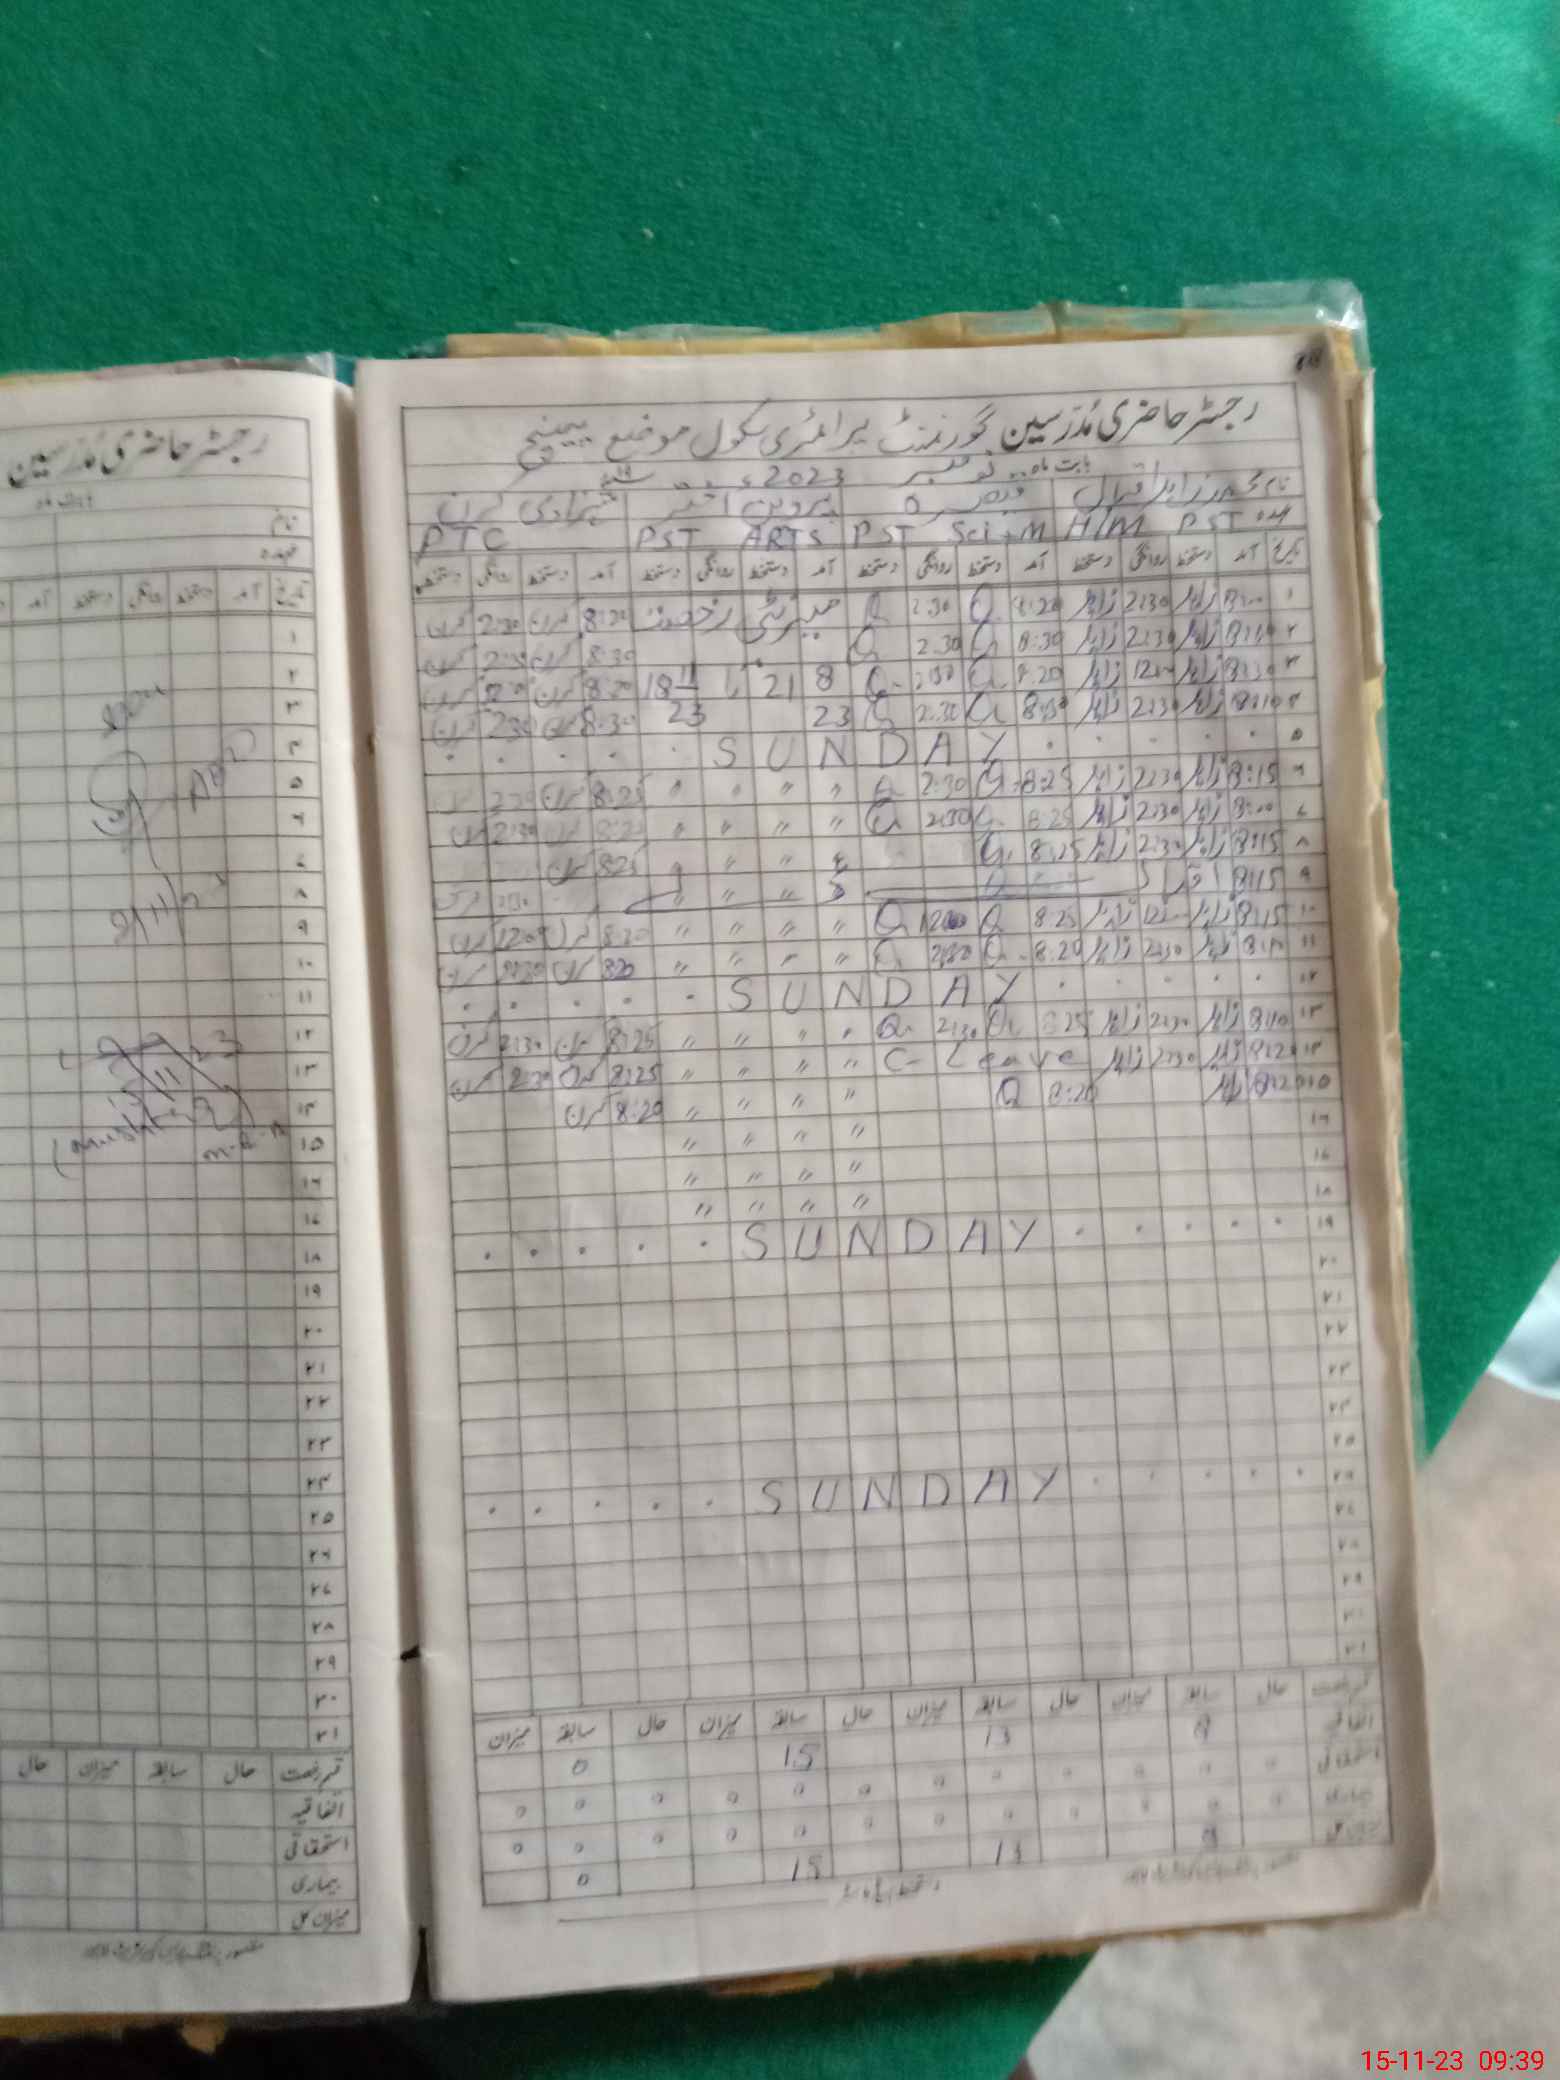 رجسٹر حاضری مُدرسین گورنمنٹ پرائمری سکول موضع
بابت ماہ نومبر 2023ء
نام زاہد اقبال قیصرہ پروین اختر شہزادی کرن
عہدہ PST H/M PST Sci-M PST ARTS PTC
تاریخ آمد دستخط روانگی دستخط آمد دستخط روانگی دستخط آمد دستخط روانگی دستخط آمد دستخط روانگی دستخط
۱ 8:00 زاہد 2:30 زاہد 8:20 Q 2:30 Q میٹرنٹی رخصت 8:20 کرن 2:30 کرن
۲ زاہد 2:30 زاہد 8:30 Q 2:30 Q 8:30 کرن 2:30 کرن
۳ زاہد 12:00 زاہد 8:20 Q Q 8 21 تا 18 11 8:20 کرن کرن
۴ 8:10 زاہد 2:30 زاہد 8:30 Q 2:30 Q 23 23 8:30 کرن 2:30 کرن
۵ SUNDAY
۶ 8:15 زاہد 2:30 زاہد 8:25 Q 2:30 Q " " " " 8:25 کرن 2:30
۷ 8:00 زاہد 2:30 زاہد 8:25 Q 2:30 Q " " " " 8:25 کرن 2:30 کرن
۸ 8:15 زاہد 2:30 زاہد 8:25 Q " " " " 8:25 کرن
۹ 8:15 " " 2:30 کرن
۱۰ 8:15 زاہد 12:00 زاہد 8:25 Q 12:00 Q " " " " 8:20 کرن 12:00 کرن
۱۱ 8:10 زاہد 2:30 زاہد 8:20 Q 2:30 Q " " " " 8:20 کرن 2:30 کرن
۱۲ SUNDAY
۱۳ 8:10 زاہد 2:30 زاہد 8:25 Q 2:30 Q " " " " 8:25 کرن 2:30 کرن
۱۴ 8:20 زاہد 2:30 زاہد C- Leave " " " " 8:25 کرن 2:30 کرن
۱۵ 8:20 زاہد 8:20 Q " " " " 8:20 کرن
۱۶ " " " "
۱۷ " " " "
۱۸ " " " "
۱۹ SUNDAY
۲۰
۲۱
۲۲
۲۳
۲۴
۲۵
۲۶ SUNDAY
۲۷
۲۸
۲۹
۳۰
۳۱
قسم رخصت حال سابقہ میزان حال سابقہ میزان حال سابقہ میزان حال سابقہ میزان
اتفاقیہ 8 13 15 0
استحقاقی 0 0 0 0 0 0 0 0 0 0 0 0
بیماری 0 0 0 0 0 0 0 0 0 0 0 0
میزان کل 8 13 15 0
رجسٹر حاضری مُدرسین
بابت ماہ
نام
عہدہ
تاریخ آمد دستخط روانگی دستخط آمد
۱
۲
۳
۴
۵
۶
۷
۸
۹
۱۰
۱۱
۱۲
۱۳
۱۴
۱۵
۱۶
۱۷
۱۸
۱۹
۲۰
۲۱
۲۲
۲۳
۲۴
۲۵
۲۶
۲۷
۲۸
۲۹
۳۰
۳۱
قسم رخصت حال سابقہ میزان حال
اتفاقیہ
استحقاقی
بیماری
میزان کل
15-11-23 09:39